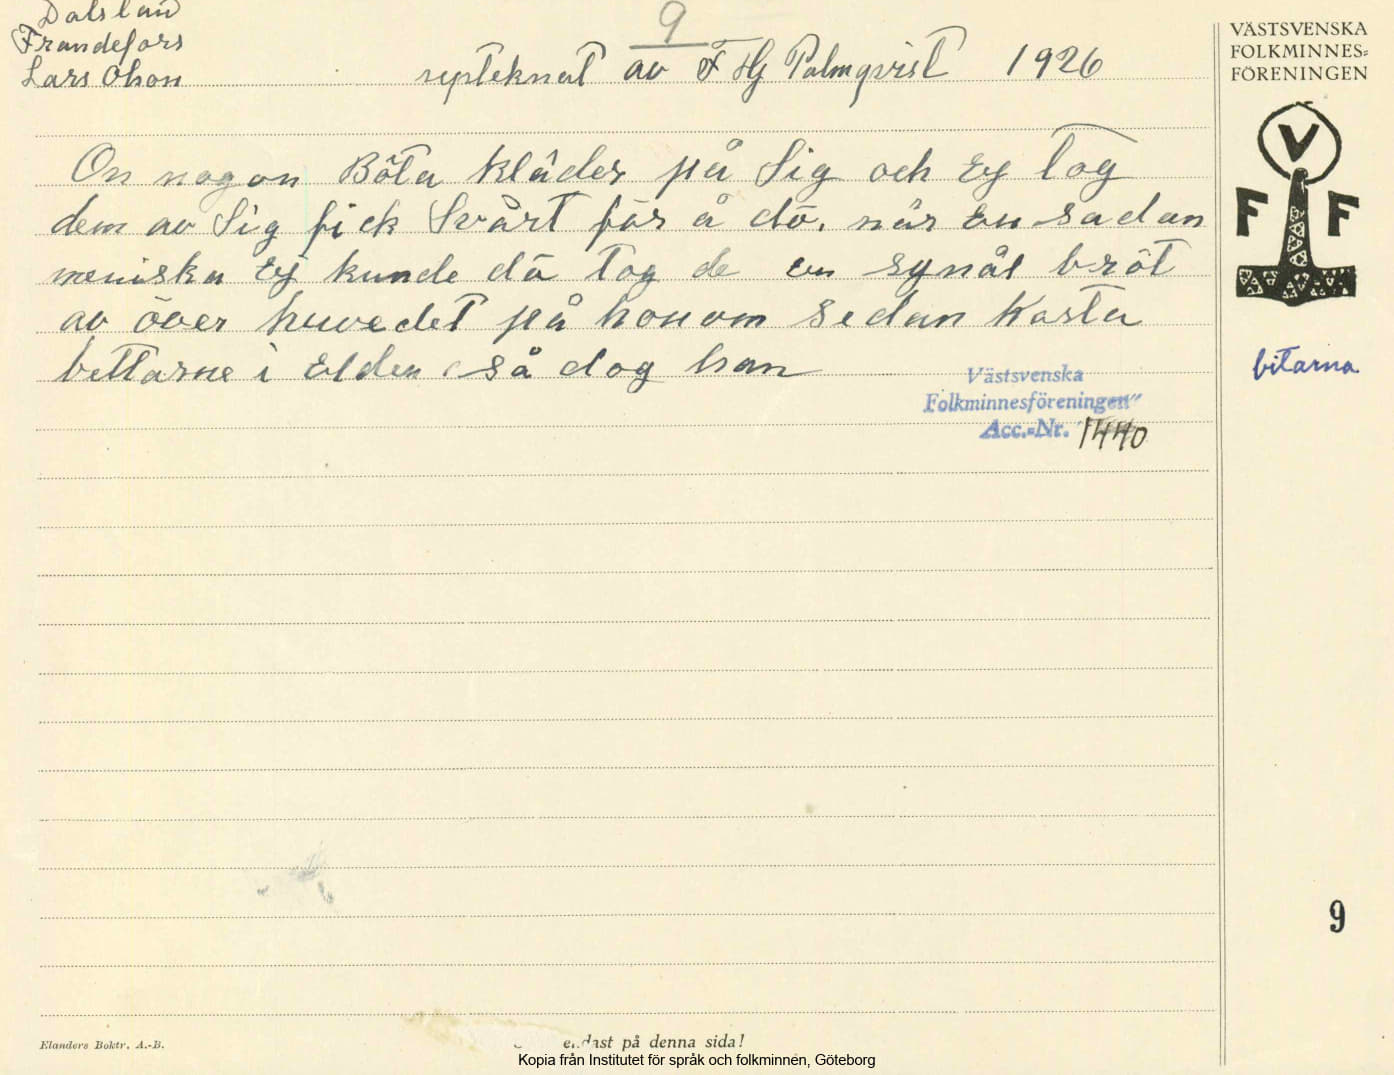 Dalsland
Frændefors
Lars Olson
9
upteknat av F Hj Palmqvist 1926
VÄSTSVENSKA
FOLKMINNES-
FÖRENINGEN
V
F F
Om nogon Böta kläder på Sig och Ej tog
dem av Sig fick Svårt för å dö. när En sadan
meniska Ej kunde dö tog de en synål bröt
av över huvedet på honom sedan Kasta
bettarne i Elden så dog han
bitarna
Västsvenska
Folkminnesföreningen"
Acc.-Nr. 1440
9
Elanders Boktr. A.-B.
endast på denna sida!
Kopia från Institutet för språk och folkminnen, Göteborg